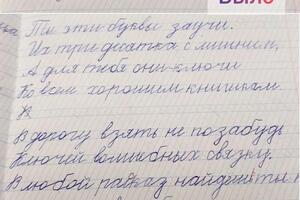 БЫЛО
Ты эти буквы заучи.
Их три десятка с лишним,
А для тебя они ключи
Ко всем хорошим книжкам.
К
В дорогу взять не позабудь
Ключей волшебных связку.
В любой рассказ найдёшь ты